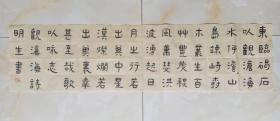 東臨碣石
以觀滄海
水何澹山
島竦峙樹
木叢生百
草豐茂秋
風蕭瑟洪
波涌起日
月之行若
出其中星
漢燦爛若
出其裏幸
甚至哉歌
以咏志
觀滄海詩
明生書